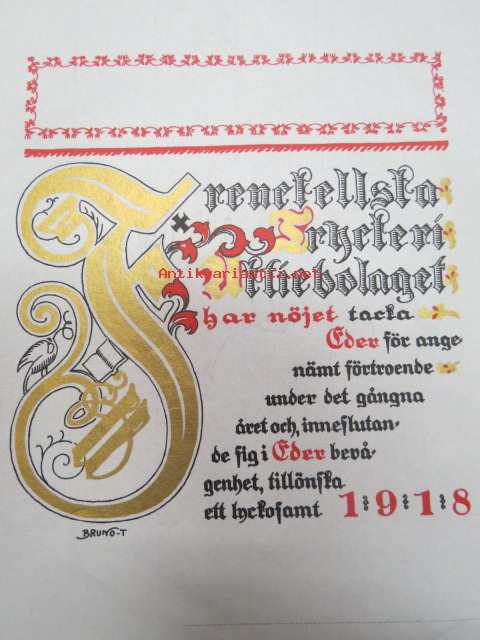 Frenckellska
Tryckeri
Aktiebolaget
har nöjet tacka
Eder för ange-
nämt förtroende
under det gångna
året och, inneslutan-
de sig i Eder bevå-
genhet, tillönska
ett lyckosamt 1:9:1:8
BRUNO-T
Antikvariaatti.net